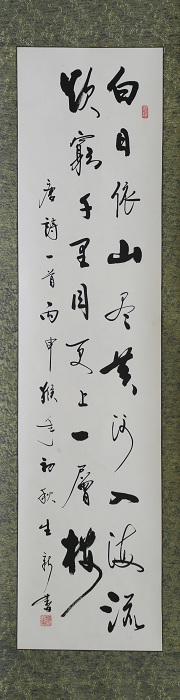 白日依山尽黄河入海流
欲穷千里目更上一层楼
唐诗一首丙申猴年初秋生新书